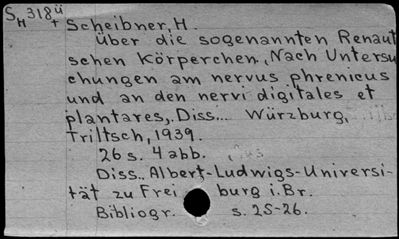 SH 318ü+
Scheibner, H.
Über die sogenannten Renaut
schen Körperchen. (Nach Untersu
chungen am nervus phrenicus
und an den nervi digitales et
plantares). Diss... Würzburg,
Triltsch, 1939.
26 s. 4 abb.
Diss.. Albert-Ludwigs-Universi-
tät zu Frei burg i. Br.
Bibliogr. s. 25-26.